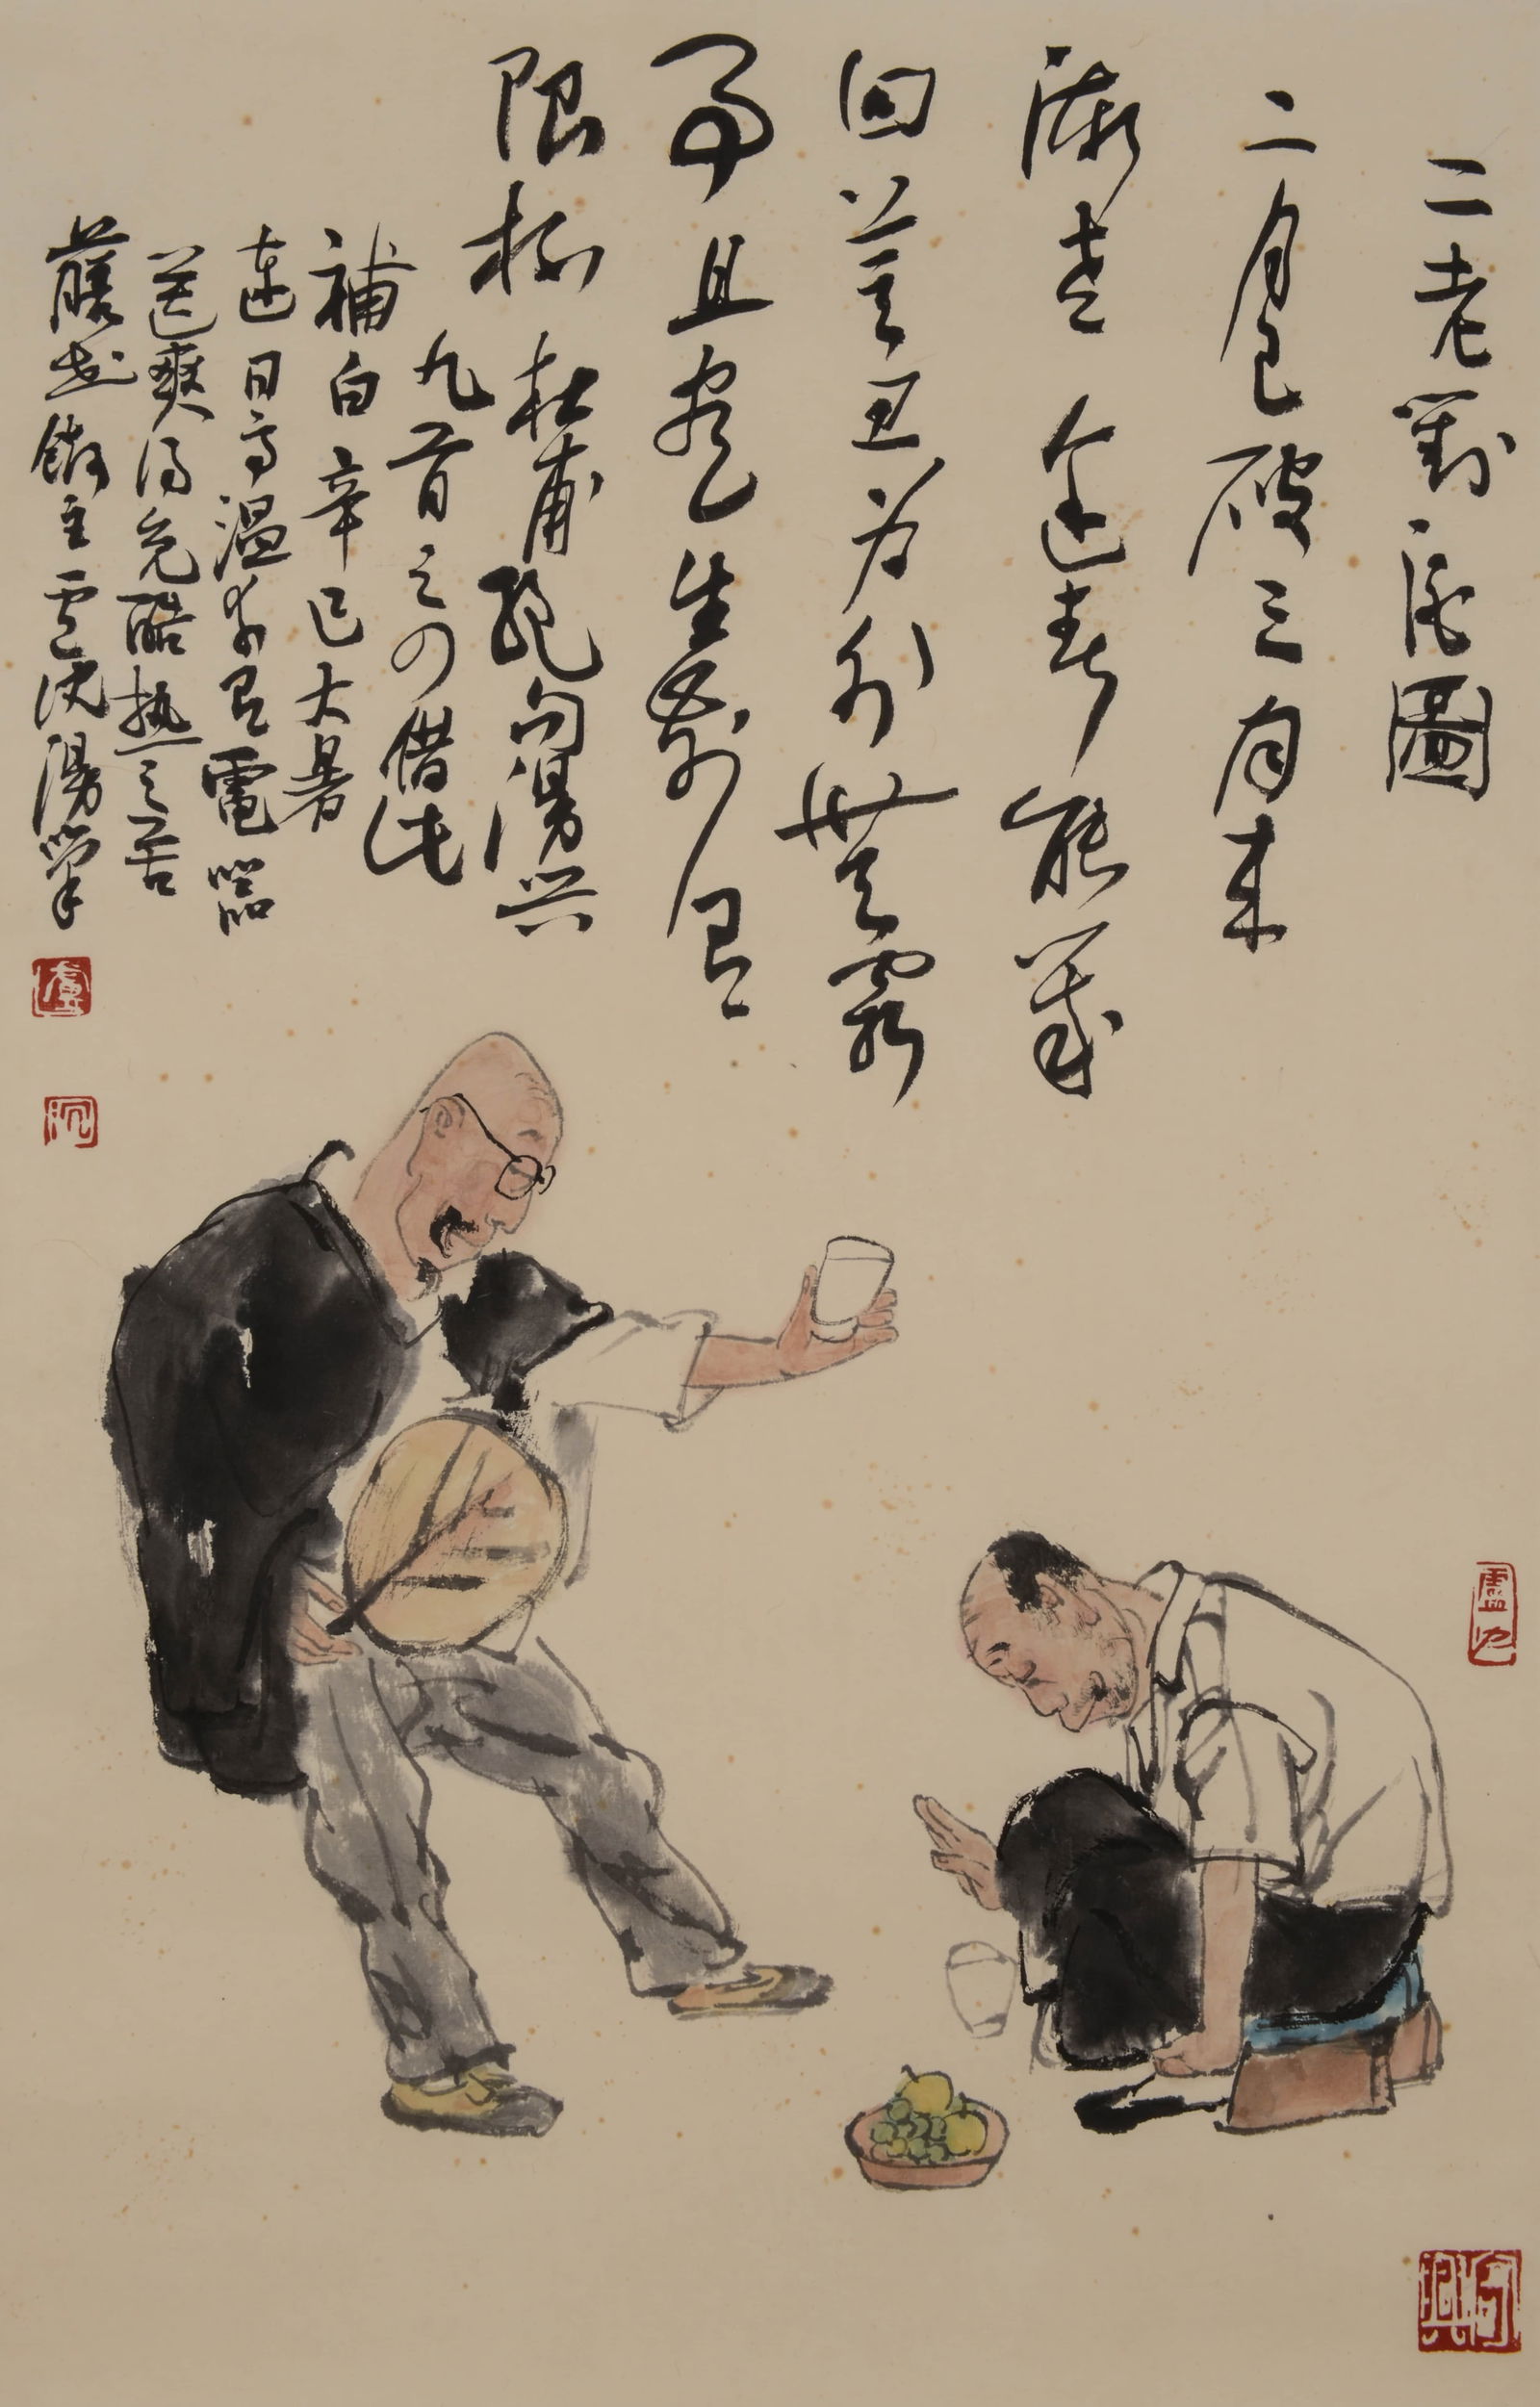 二老對圖
二月已破三月来
漸老逢春能幾
回莫思身外無窮
事且盡生前有
限杯 杜甫絕句漫兴
九首之四借此
補白 辛巳大暑
連日高温幸有電器
送爽得免酷热之苦
館主盧沈漫筆
盧
沉
盧沉